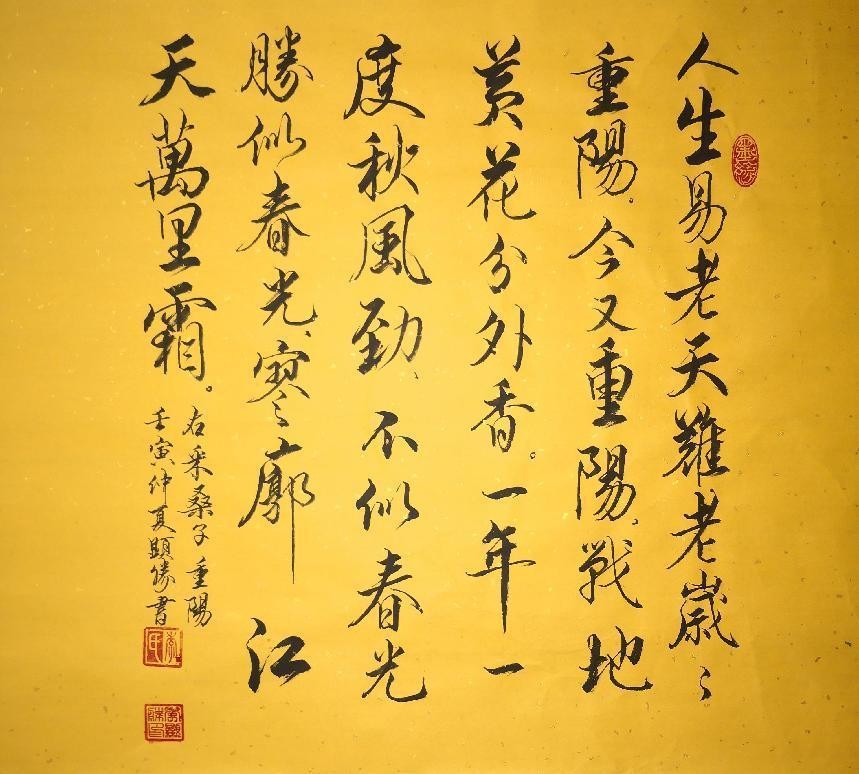 人生易老天難老歲〻
重陽。今又重陽。戰地
黃花分外香。一年一
度秋風勁、不似春光
勝似春光、寥廓江
天萬里霜。
右采桑子重陽
壬寅仲夏顯勝書